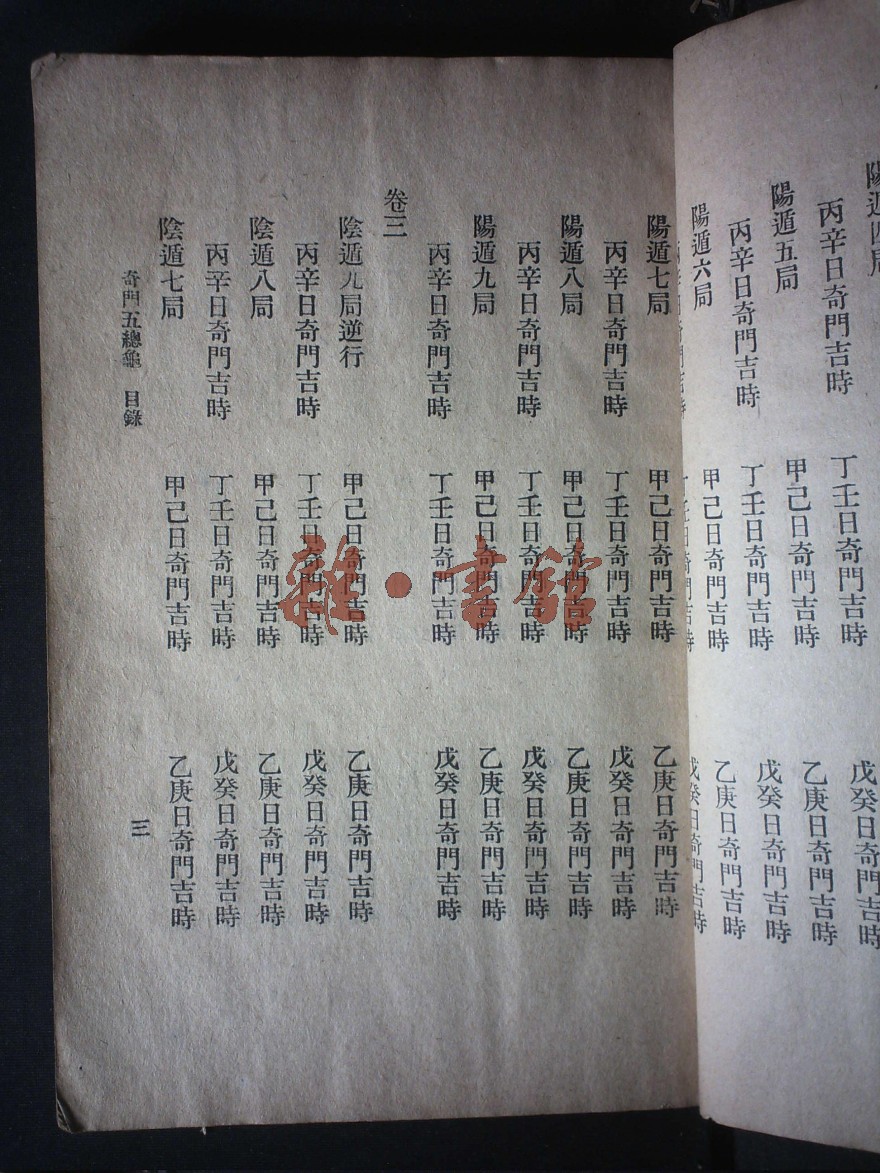 陽遁四局
丙辛日奇門吉時 丁壬日奇門吉時 戊癸日奇門吉時
陽遁五局 甲己日奇門吉時 乙庚日奇門吉時
丙辛日奇門吉時 丁壬日奇門吉時 戊癸日奇門吉時
陽遁六局 甲己日奇門吉時 乙庚日奇門吉時
丙辛日奇門吉時 丁壬日奇門吉時 戊癸日奇門吉時
陽遁七局 甲己日奇門吉時 乙庚日奇門吉時
丙辛日奇門吉時 丁壬日奇門吉時 戊癸日奇門吉時
陽遁八局 甲己日奇門吉時 乙庚日奇門吉時
丙辛日奇門吉時 丁壬日奇門吉時 戊癸日奇門吉時
陽遁九局 甲己日奇門吉時 乙庚日奇門吉時
丙辛日奇門吉時 丁壬日奇門吉時 戊癸日奇門吉時
卷三
陰遁九局逆行 甲己日奇門吉時 乙庚日奇門吉時
丙辛日奇門吉時 丁壬日奇門吉時 戊癸日奇門吉時
陰遁八局 甲己日奇門吉時 乙庚日奇門吉時
丙辛日奇門吉時 丁壬日奇門吉時 戊癸日奇門吉時
陰遁七局 甲己日奇門吉時 乙庚日奇門吉時
奇門五總龜 目錄 三
雜·書館